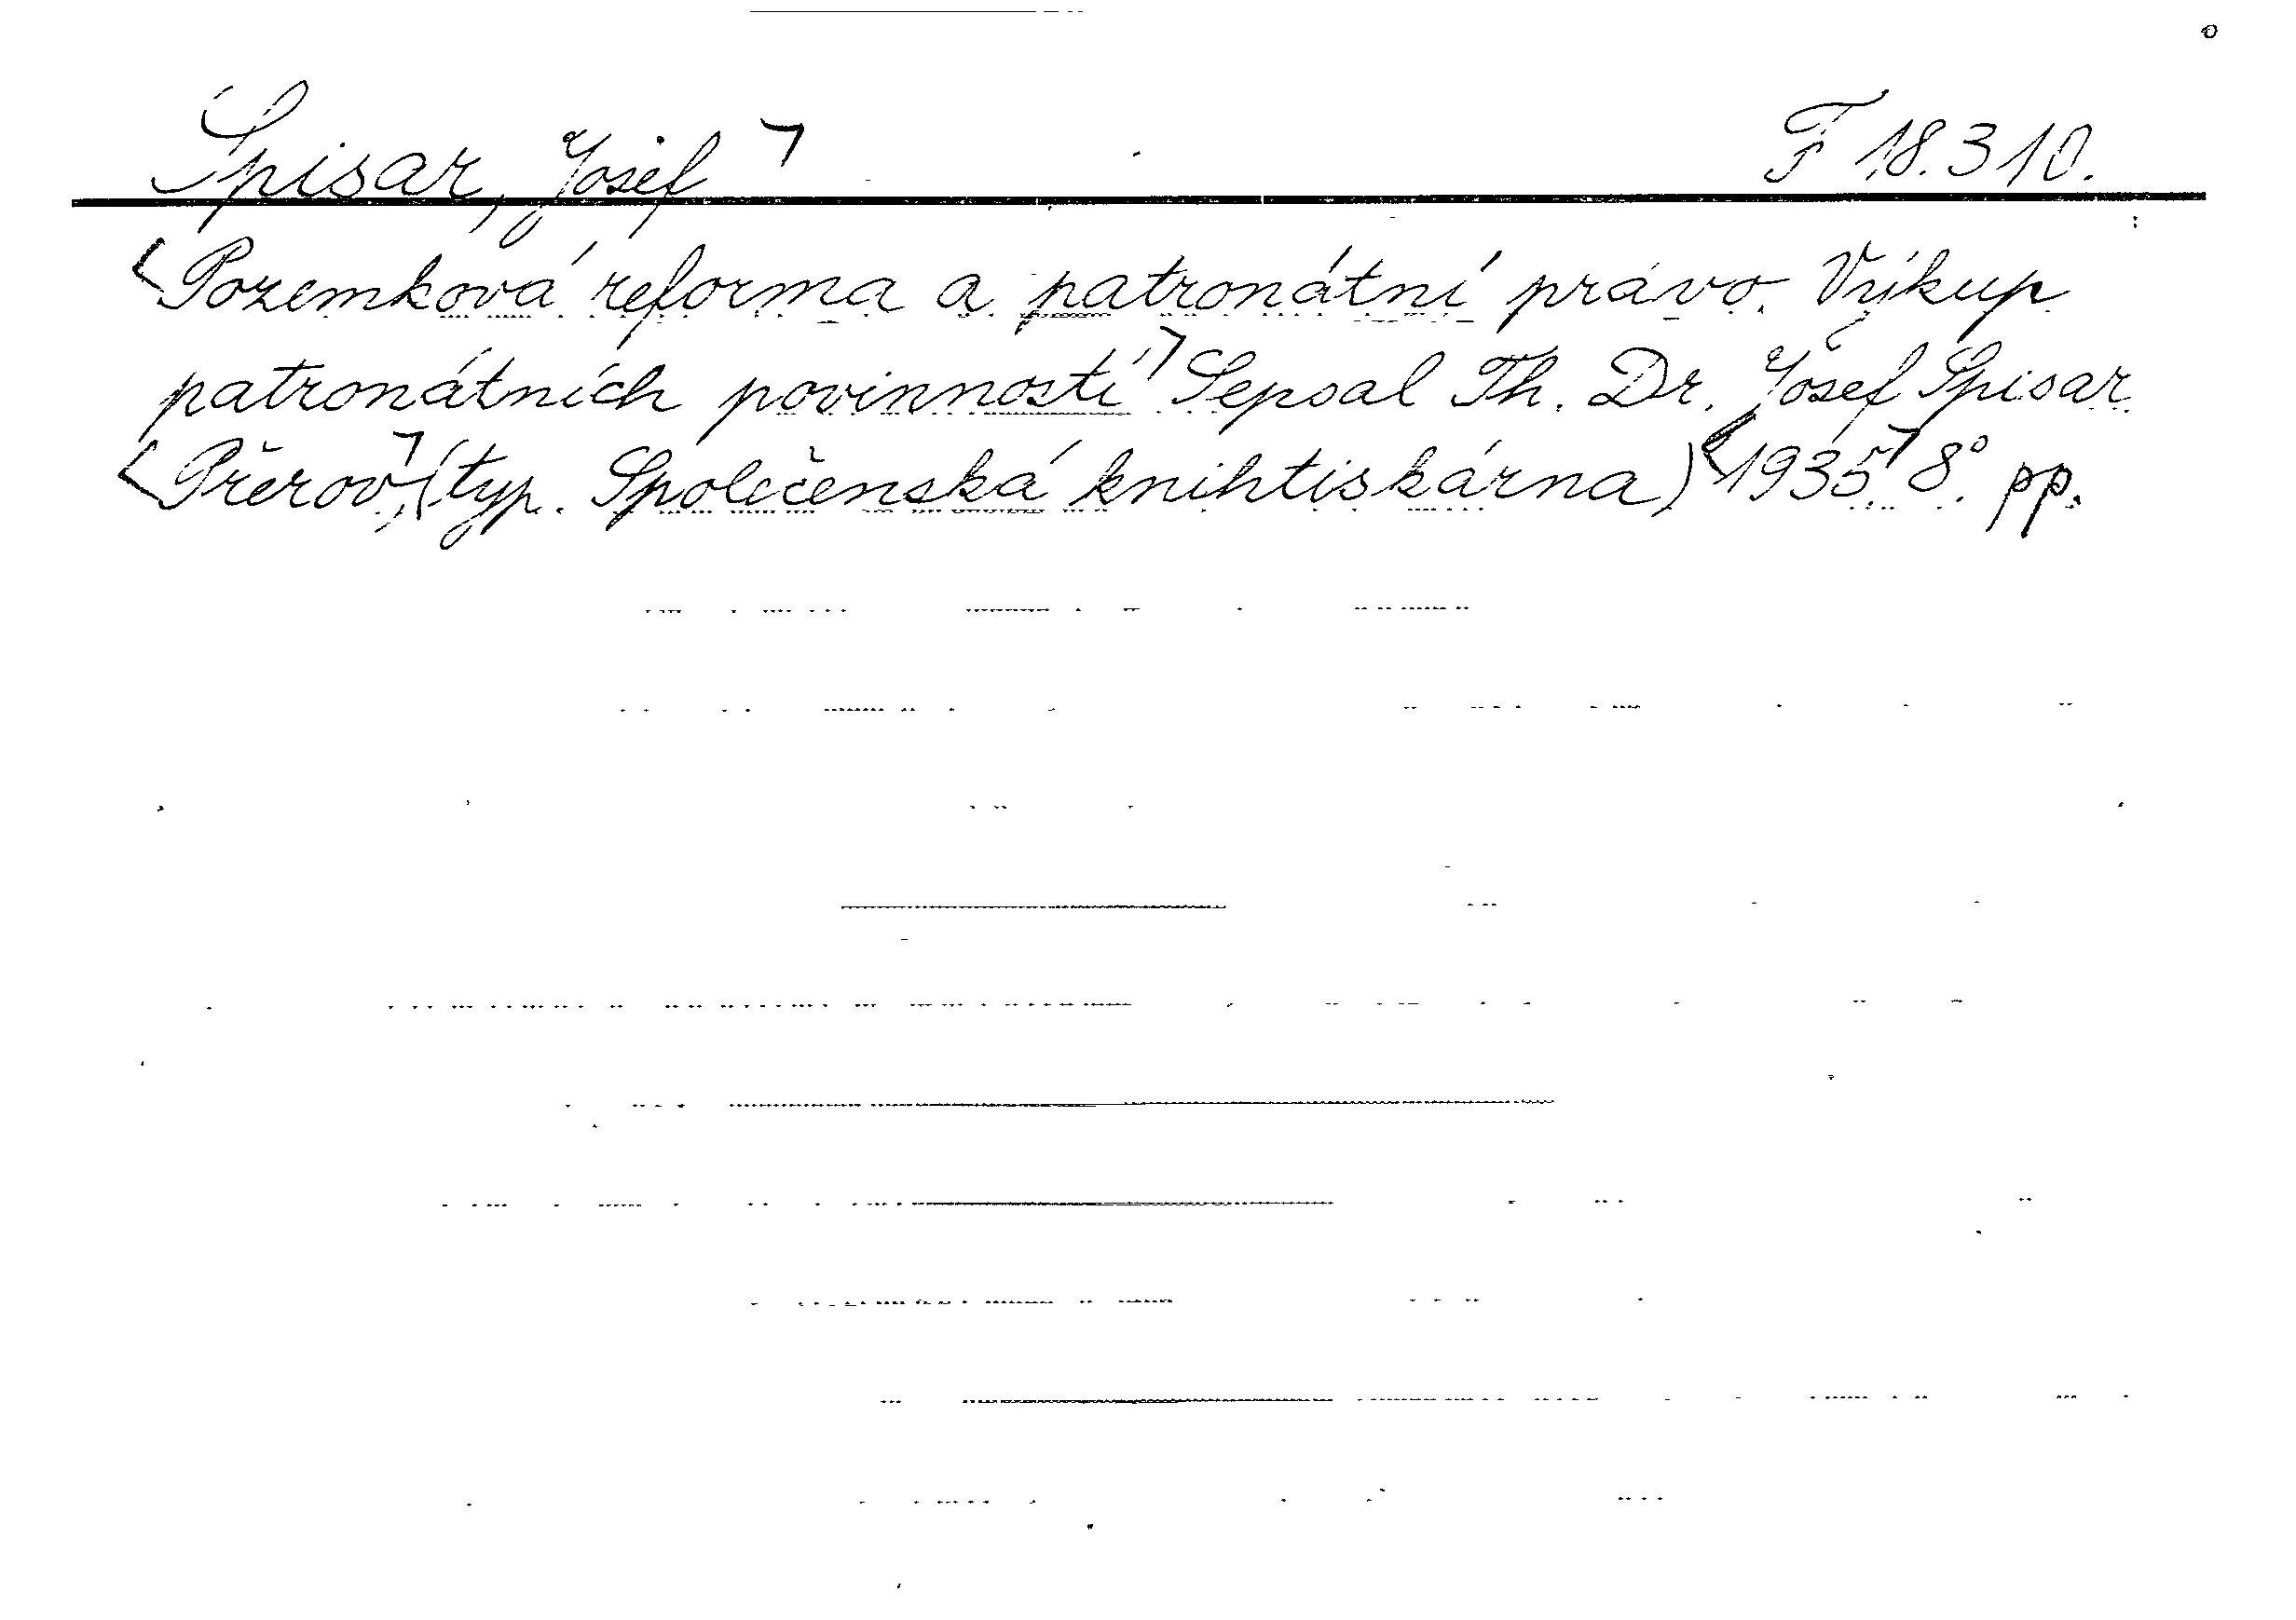 Špisar, Josef F 18.310.
Pozemková reforma a patronátní právo. Výkup
patronátních povinností Sepsal Th. Dr. Josef Špisar.
Přerov, (typ. Společenská knihtiskárna) 1935. 8°. pp.